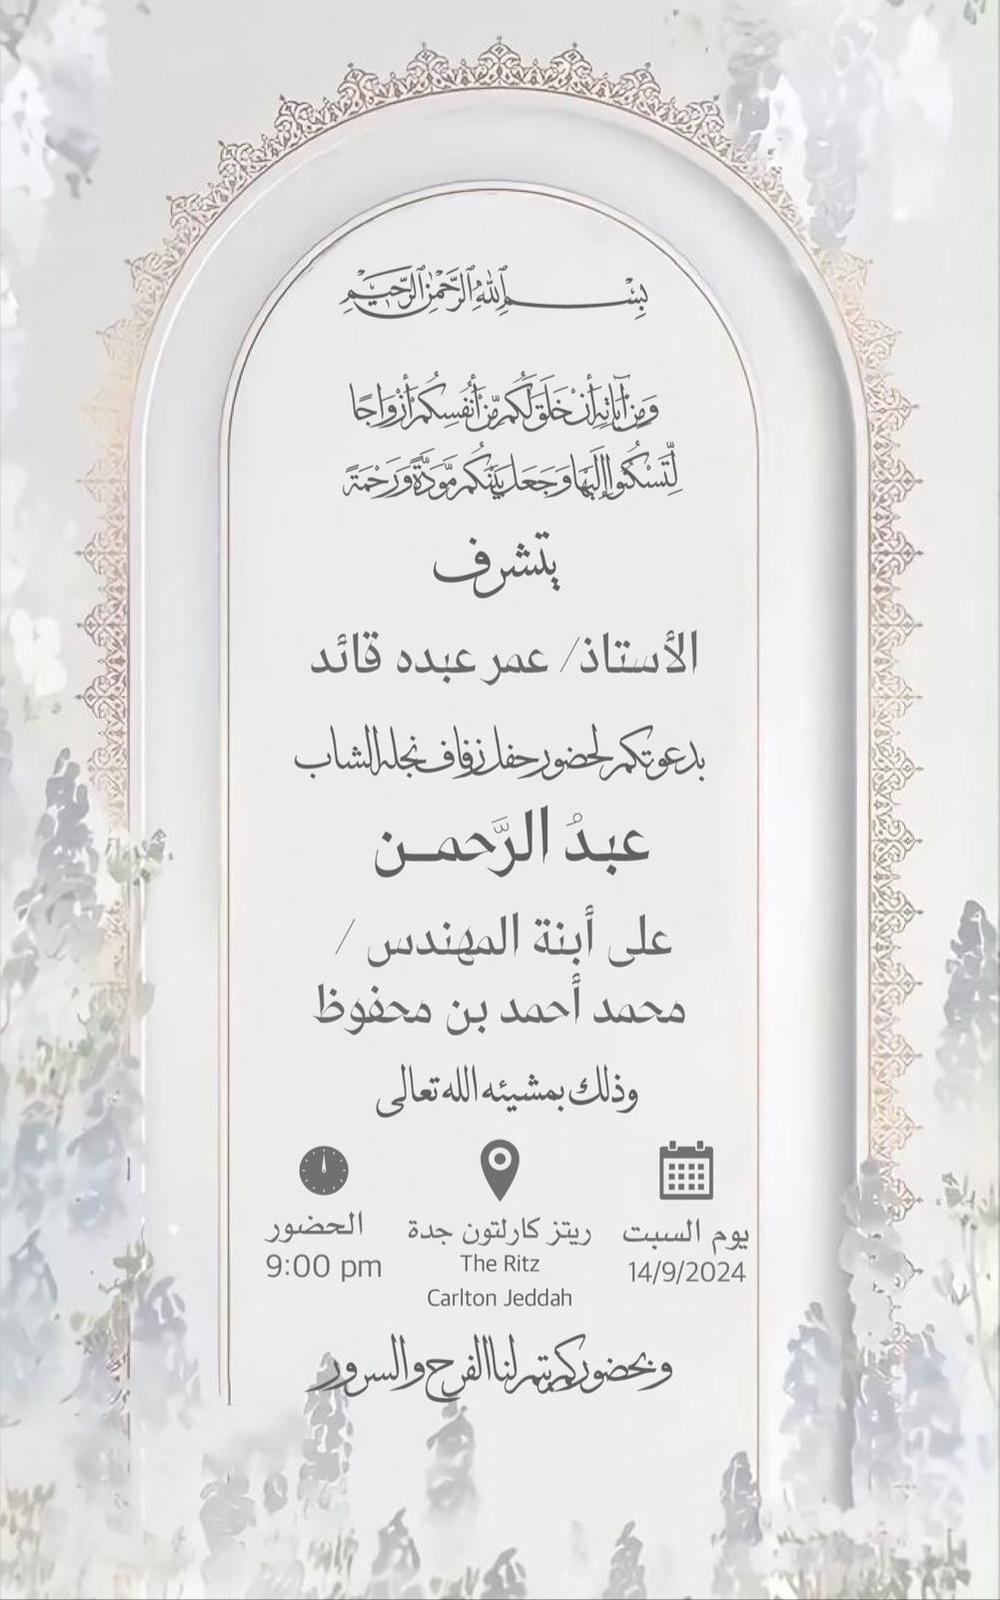 بِسْمِ اللَّهِ الرَّحْمَٰنِ الرَّحِيمِ
وَمِنْ آيَاتِهِ أَنْ خَلَقَ لَكُم مِّنْ أَنفُسِكُمْ أَزْوَاجًا
لِّتَسْكُنُوا إِلَيْهَا وَجَعَلَ بَيْنَكُم مَّوَدَّةً وَرَحْمَةً
يتشرف
الأستاذ/ عمر عبده قائد
بدعوتكم لحضور حفل زفاف نجله الشاب
عبدُ الرَّحمـن
على أبنة المهندس /
محمد أحمد بن محفوظ
وذلك بمشيئه الله تعالى
يوم السبت
14/9/2024
ريتز كارلتون جدة
The Ritz
Carlton Jeddah
الحضور
9:00 pm
وبحضوركم يتم لنا الفرح والسرور